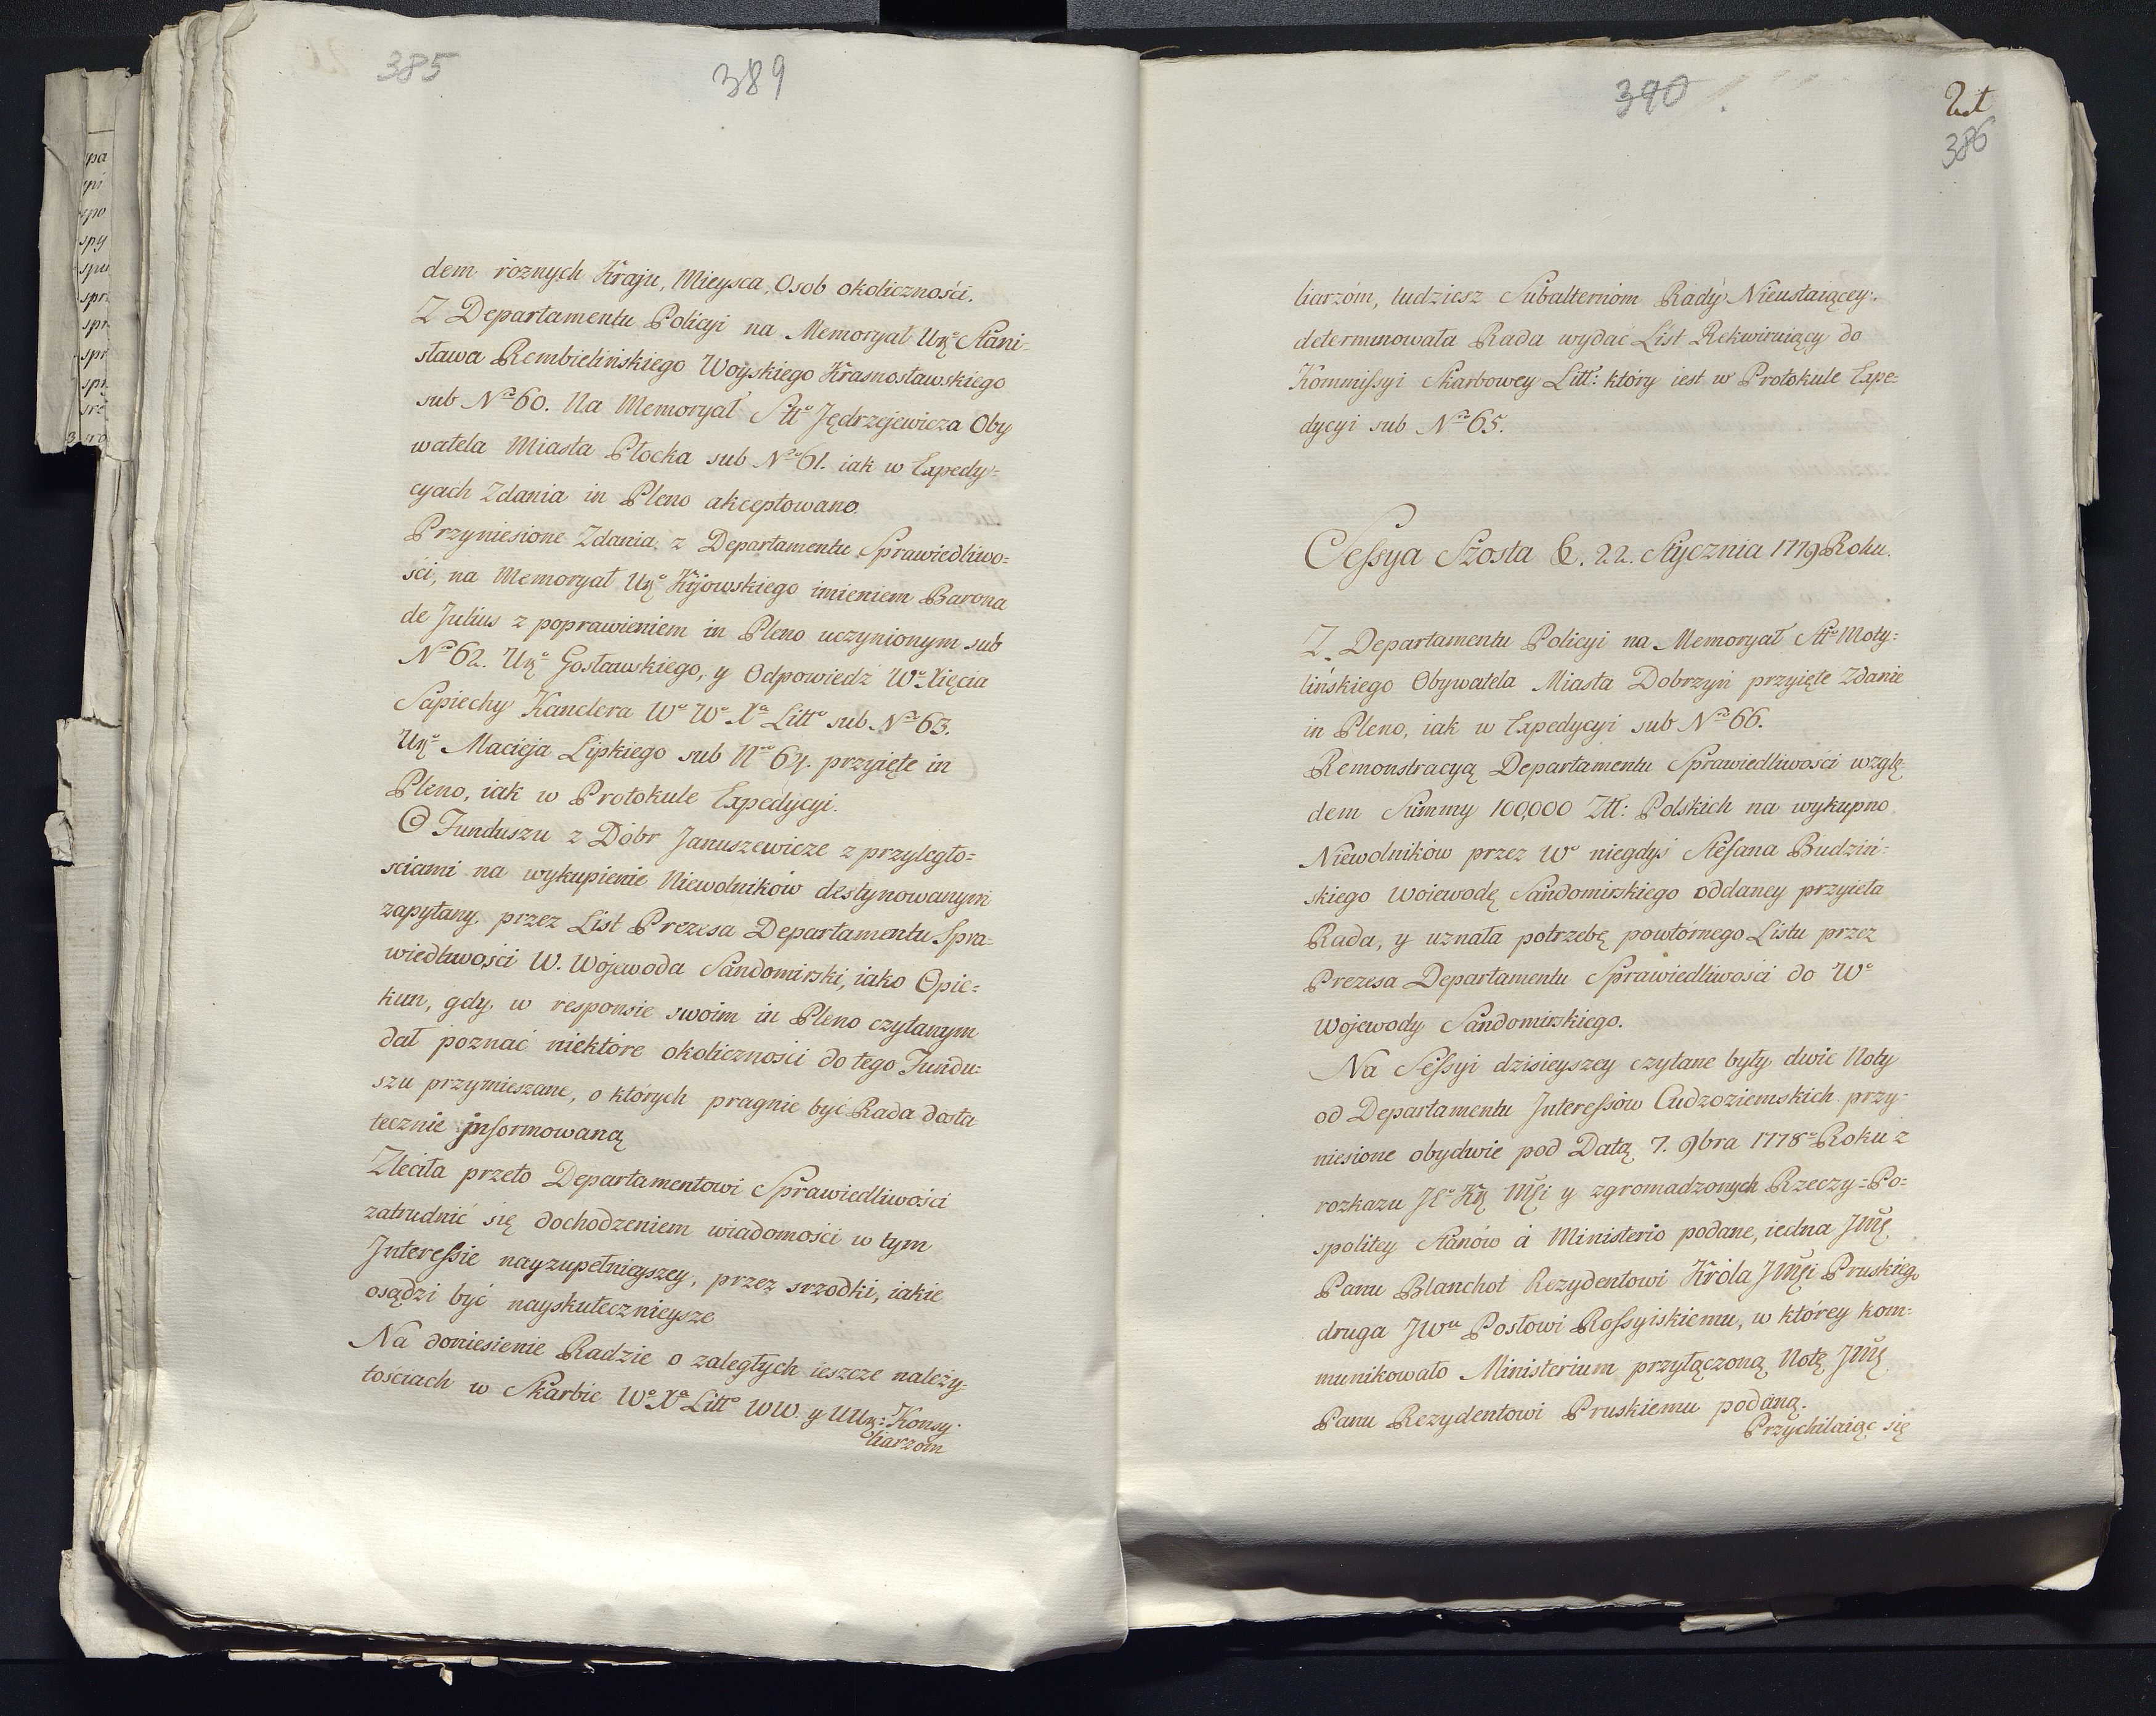 385
389
dem roznych Kraju, Mieysca, Osob okoliczności.
Z Departamentu Policyi na Memoryał Ur: Stani-
sława Rembielińskiego Woyskiego Krasnostawskiego
sub Nro 60. Na Memoryał Stto Jędrzejewicza Oby
watela Miasta Płocka sub Nro 61. iak w Expedy=
cyach Zdania in Pleno akceptowano.
Przyniesione Zdania z Departamentu Sprawiedliwo=
ści, na Memoryał Ur: Kijowskiego imieniem Barona
de Julius z poprawieniem in Pleno uczynionym sub
Nro 62. Ur: Gosławskiego, y Odpowiedź Wo Xięcia
Sapiechy Kanclera Wo Wo Xa Litto sub Nro 63.
Ur: Macieja Lipkiego sub Nro 64. przyięte in
Pleno, iak w Protokule Expedycyi.
O Funduszu z Dóbr Januszewicze z przyległo=
sciami na wykupienie Niewolników destynowanym
zapytany, przez List Prezesa Departamentu Spra=
wiedliwości W. Wojewoda Sandomirski, iako Opie=
kun, gdy w responsie swoim in Pleno czytanym
dał poznać niektóre okoliczności do tego Fundu=
szu przymieszane, o których pragnie być Rada dosta
tecznie informowaną
Zleciła przeto Departamentowi Sprawiedliwości
zatrudnić się dochodzeniem wiadomości w tym
Interessie nayzupełnieyszey, przez srzodki, iakie
osądzi być nayskutecznieysze
Na doniesienie Radzie o zaległych ieszcze należy-
tościach w Skarbie Wo Xa Litto WW. y UUr: Konsy-
liarzom
390
386
liarzóm, tudziesz Subalternóm Rady Nieustaiącey.
determinowała Rada wydać List Rekwiruiący do
Kommissyi Skarbowey Litt: który iest w Protokule Expe=
dycyi sub Nro 65.
Sessya Szosta D. 22. Stycznia 1779 Roku.
Z Departamentu Policyi na Memoryał Stto Moty=
lińskiego Obywatela Miasta Dobrzyń przyięte Zdanie
in Pleno, iak w Expedycyi sub Nro 66.
Remonstracyą Departamentu Sprawiedliwości wzglę
dem Summy 100,000 Ztt: Polskich na wykupno
Niewolników przez Wo niegdyś Stefana Budziń-
skiego Woiewodę Sandomirskiego oddaney przyieła
Rada, y uznała potrzebę powtórnego Listu przez
Prezesa Departamentu Sprawiedliwości do Wo
Wojewody Sandomirskiego.
Na Sessyi dzisieyszey czytane były dwie Noty
od Departamentu Interessów Cudzoziemskich przy-
niesione obydwie pod Datą 7. 9bra 1778o Roku z
rozkazu JKr Mści y zgromadzonych Rzeczy=Po=
spolitey Stanów á Ministerio podane, iedna JMę
Panu Blanchot Rezydentowi Króla JMści Pruskiego
druga JWu Posłowi Rossyiskiemu, w którey kom=
munikowało Ministerium przyłączoną Notę JMę
Panu Rezydentowi Pruskiemu podaną.
Przychilaiąc się